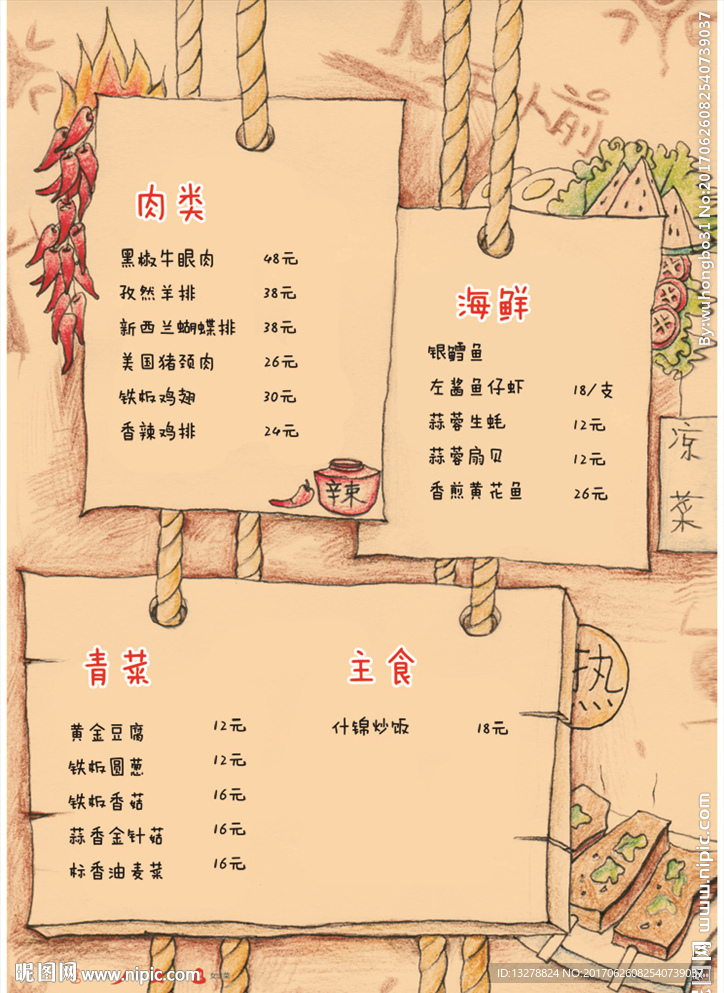 肉类
黑椒牛眼肉 48元
孜然羊排 38元
新西兰蝴蝶排 38元
美国猪颈肉 26元
铁板鸡翅 30元
香辣鸡排 24元
辣
海鲜
银鳕鱼
左酱鱼仔虾 18/支
蒜蓉生蚝 12元
蒜蓉扇贝 12元
香煎黄花鱼 26元
凉菜
青菜
黄金豆腐 12元
铁板圆葱 12元
铁板香菇 16元
蒜香金针菇 16元
标香油麦菜 16元
主食
什锦炒饭 18元
热
By:wuhongbo31 No:20170626082540739037
昵图网 www.nipic.com
昵图网 www.nipic.com
ID:13278824 NO:20170626082540739037